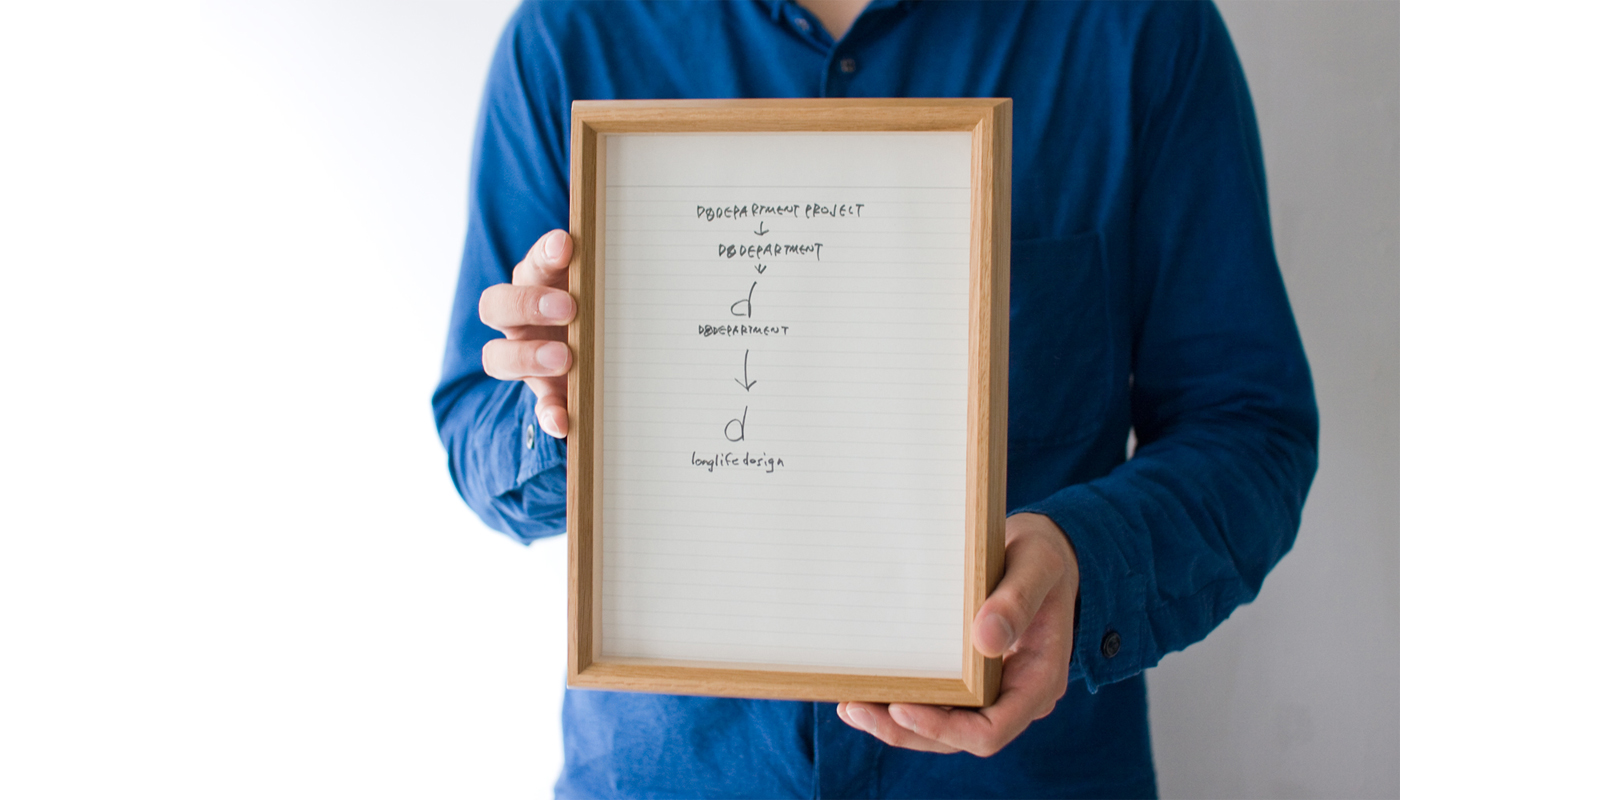 D&DEPARTMENT PROJECT
↓
D&DEPARTMENT
↓
d
D&DEPARTMENT
↓
d
longlife design